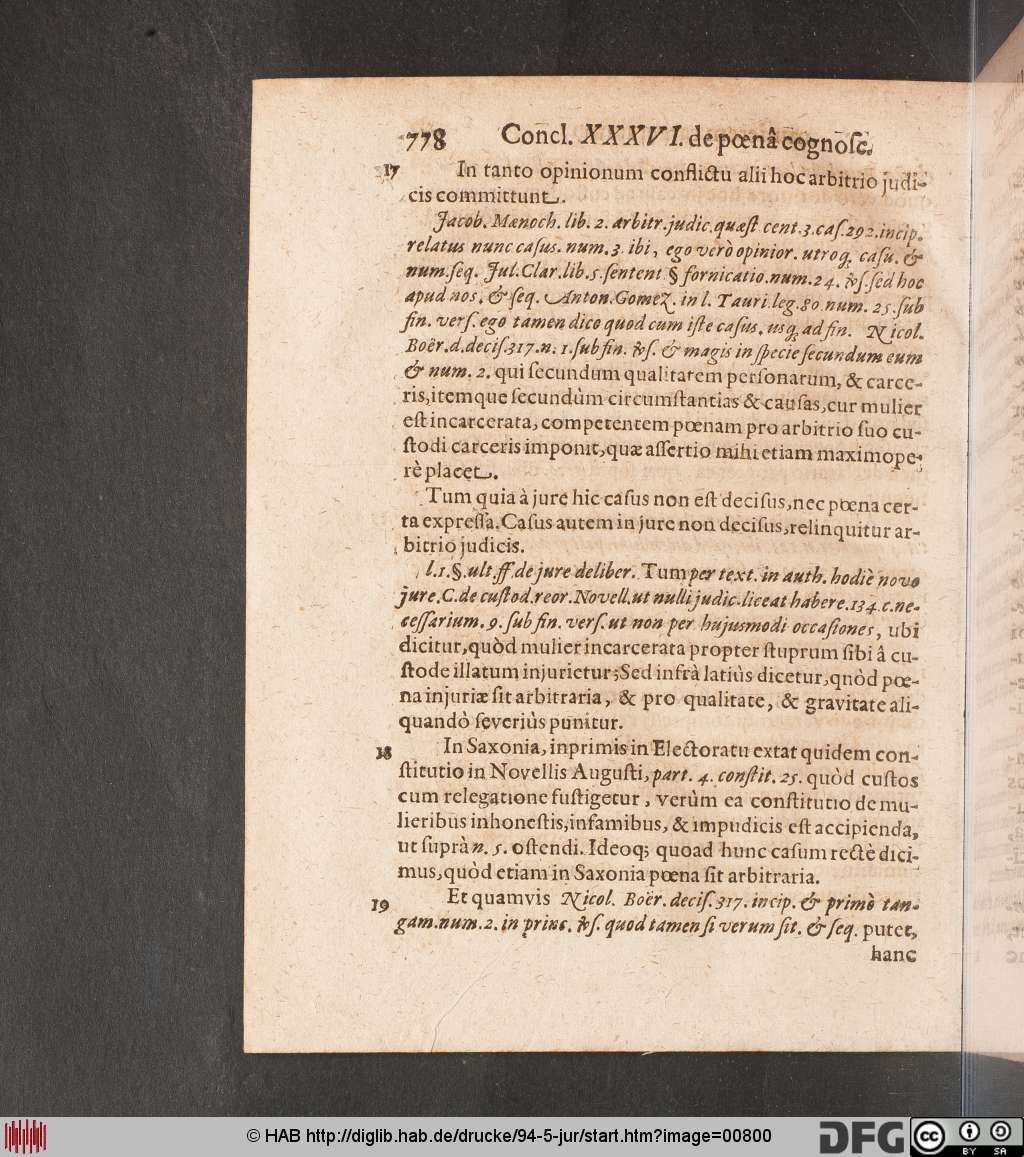 778 Concl. XXXVI. de pœnâ cognoſc.
17 In tanto opinionum conflictu alii hoc arbitrio judi-
cis committunt.
Jacob. Mænoch. lib. 2. arbitr. judic. quæſt cent. 3. caſ. 292. incip.
relatus nunc caſus. num. 3. ibi, ego verò opinior. utroq; caſu. &
num. ſeq. Jul. Clar. lib. 5. ſentent § fornicatio. num. 24. vſ. ſed hoc
apud nos. & ſeq. Anton. Gomez. in l. Tauri leg. 80 num. 25. ſub
fin. verſ. ego tamen dico quod cum iſte caſus. uſq; ad fin. Nicol.
Boër. d. deciſ. 317. n. 1. ſub fin. vſ. & magis in ſpecie ſecundum eum
& num. 2. qui ſecundum qualitatem perſonarum, & carce-
ris, itemque ſecundùm circumſtantias & cauſas, cur mulier
eſt incarcerata, competentem pœnam pro arbitrio ſuo cu-
ſtodi carceris imponit, quæ aſſertio mihi etiam maximope-
rè placet.
Tum quia à jure hic caſus non eſt deciſus, nec pœna cer-
ta expreſſa. Caſus autem in jure non deciſus, relinquitur ar-
bitrio judicis.
l. 1. §. ult. ff. de jure deliber. Tum per text. in auth. hodiè novo
jure. C. de cuſtod. reor. Novell. ut nulli judic. liceat habere. 134. c. ne-
ceſſarium. 9. ſub fin. verſ. ut non per hujusmodi occaſiones, ubi
dicitur, quòd mulier incarcerata propter ſtuprum ſibi â cu-
ſtode illatum injurietur; Sed infrà latiùs dicetur, qnòd pœ-
na injuriæ ſit arbitraria, & pro qualitate, & gravitate ali-
quandò ſeveriùs punitur.
18 In Saxonia, inprimis in Electoratu extat quidem con-
ſtitutio in Novellis Auguſti, part. 4. conſtit. 25. quòd cuſtos
cum relegatione fuſtigetur, verùm ea conſtitutio de mu-
lieribus inhoneſtis, infamibus, & impudicis eſt accipienda,
ut ſuprà n. 5. oſtendi. Ideoq; quoad hunc caſum rectè dici-
mus, quòd etiam in Saxonia pœna ſit arbitraria.
19 Et quamvis Nicol. Boër. deciſ. 317. incip. & primò tan-
gam. num. 2. in princ. vſ. quod tamen ſi verum ſit. & ſeq. putet,
hanc
© HAB http://diglib.hab.de/drucke/94-5-jur/start.htm?image=00800
DFG
cc BY SA